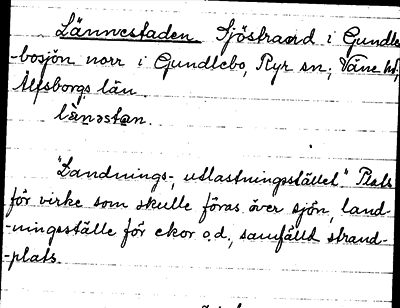 Lännestaden Sjöstrand i Gundle-
-bosjön norr i Gundlebo, Ryr sn; Väne hd;
Älfsborgs län.
lännəstan.
"Landnings-, utlastningsstället." Plats
för virke som skulle föras över sjön, land-
-ningsställe för ekor o.d., samfälld strand-
-plats.